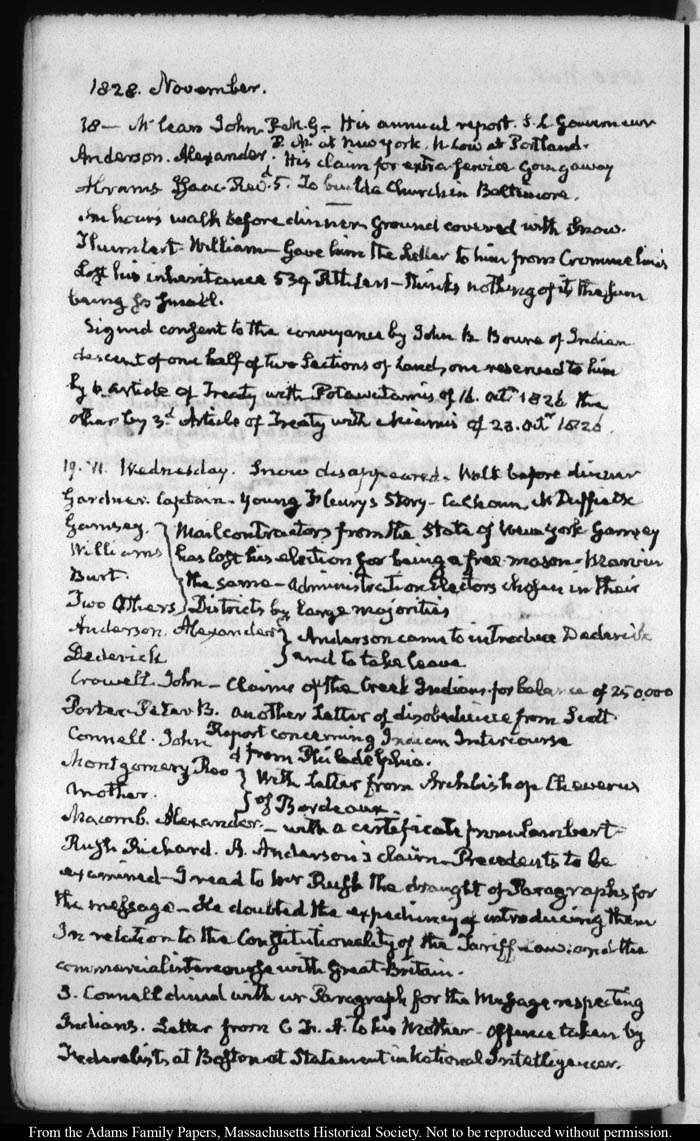 1828. November.
18 — McLean John. P.M.G — His annual report. S. L. Gouverneur
P. M. at New York. N Low at Portland.
Anderson. Alexander. His claim for extra service Going away
Abrams Isaac. Revd. 5. To build a Church in Baltimore.
An hours walk before dinner. Ground covered with Snow.
William — Gave him the Letter to him from Crommelin's
Lost his inheritance 539 — thinks nothing of it the sum
being so small.
Signed consent to the conveyance by John B. Boure of Indian
descent of one half of two Sections of Land, one reserved to him
by 6. Article of Treaty with Potawatamis of 16. Octr. 1826 the
other by 3d. Article of Treaty with Miamis of 23. Octr. 1826.
19. VI. Wednesday. Snow disappeared. Walk before dinner
Gardner. Captain. Young Fleury's Story — Calhoun, McDuffie &c
Garnsey.
Williams
Burt.
Two Others
Mail contractors from the State of New York Garnsey
has lost his election for being a free mason — Marvin
the same — Administration Electors chosen in their
Districts by large majorities
Anderson. Alexander
Dederick
Anderson came to introduce Dederick
and to take leave
Crowell. John — Claims of the Creek Indians for balance of 250,000
Porter. Peter B. another Letter of disobedience from Scott.
Report concerning Indian Intercourse
Connell. John from Philadelphia.
Montgomery Rev
Mother.
With Letter from Archbishop Cheverus
of Bordeaux.
Macomb. Alexander — with a certificate from Lambert
Rush Richard. R. Anderson's claim. Precedents to be
examined — I read to Mr Rush the draught of Paragraphs for
the message — He doubted the expediency of introducing them
In relation to the Constitutionality of the Tariff Law: and the
commercial intercourse with Great Britain.
J. Connell dined with us Paragraph for the Message respecting
Indians. Letter from C. F. A. to his Mother — offence taken by
Federalists at Boston at Statement in National Intelligencer.
From the Adams Family Papers, Massachusetts Historical Society. Not to be reproduced without permission.